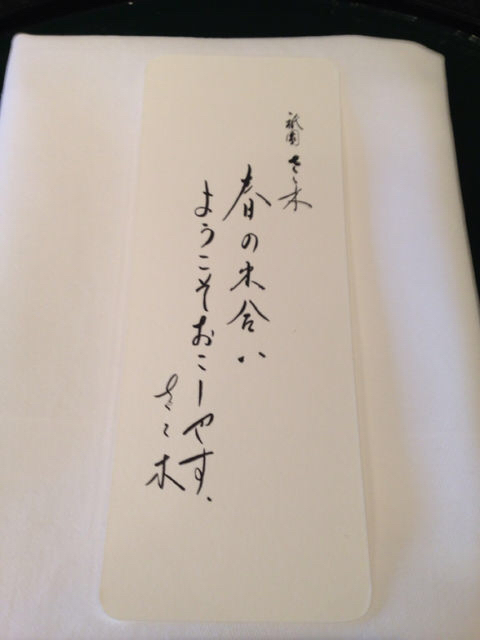 祇園 さゝ木
春の出合い
ようこそおこしやす、
さゝ木